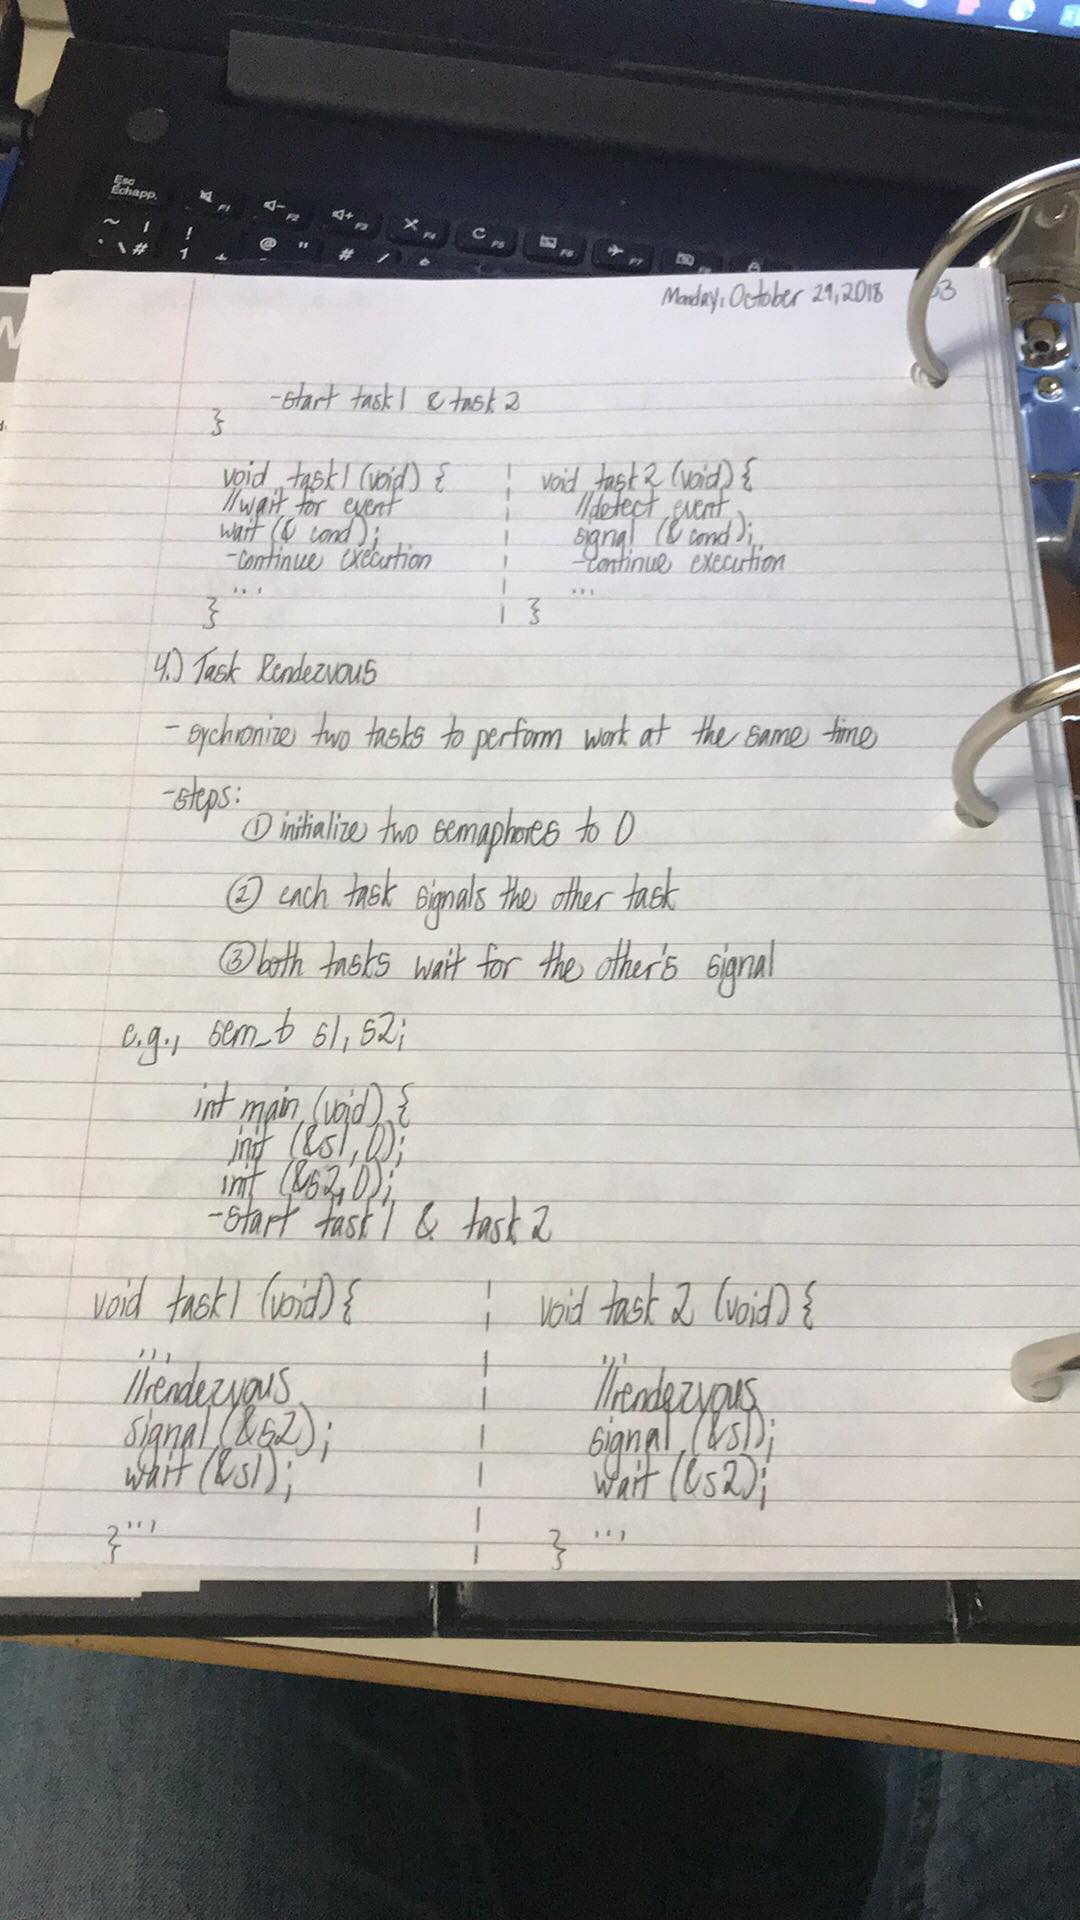 Esc
Échapp.
F1
F2
F3
F4
F5
F6
F7
Monday, October 29, 2018
-start task1 & task 2
}
void task1 (void) {
//wait for event
wait (& cond);
-continue execution
...
}
void task 2 (void) {
//detect event
signal (& cond);
-continue execution
...
}
4.) Task Rendezvous
- sychronize two tasks to perform work at the same time
-steps:
① initialize two semaphores to 0
② each task signals the other task
③ both tasks wait for the other's signal
e.g., sem_t s1, s2;
int main (void) {
init (&s1, 0);
init (&s2, 0);
-start task1 & task 2
void task1 (void) {
...
//rendezvous
signal (&s2);
wait (&s1);
...
}
void task 2 (void) {
...
//rendezvous
signal (&s1);
wait (&s2);
...
}